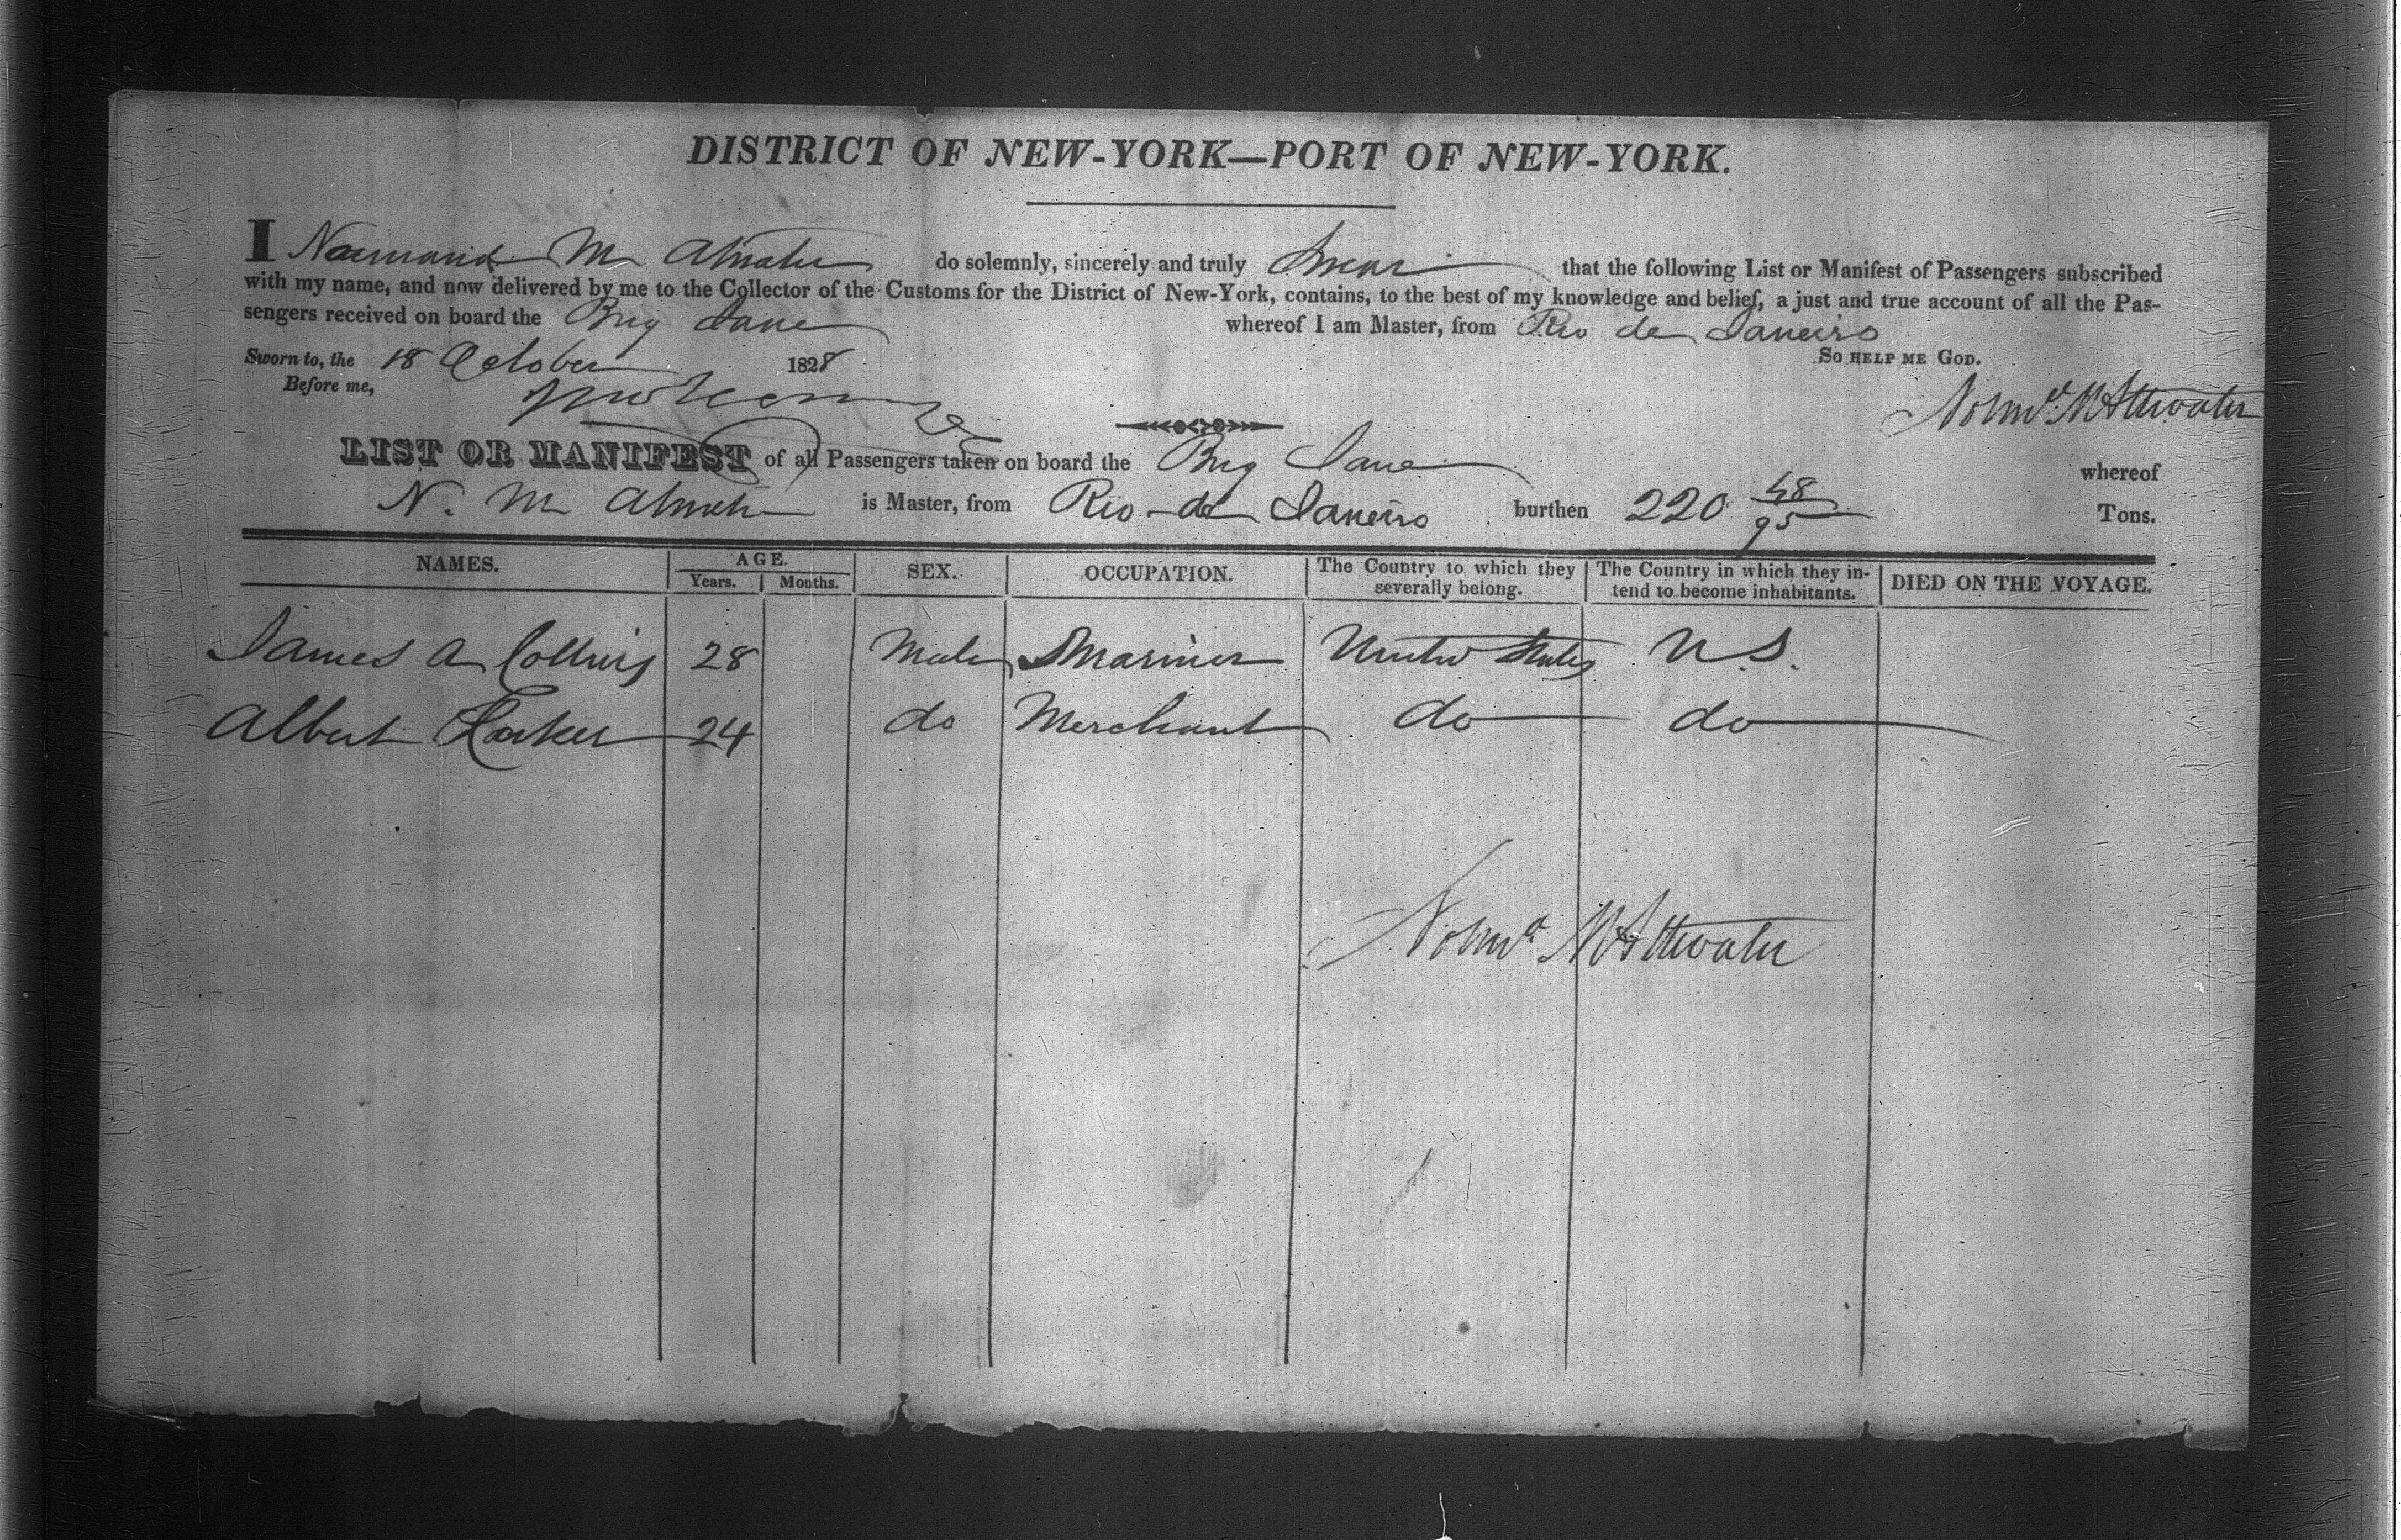 DISTRICT OF NEW-YORK—PORT OF NEW-YORK.
I Normand M Atwater do solemnly, sincerely and truly Swear that the following List or Manifest of Passengers subscribed
with my name, and now delivered by me to the Collector of the Customs for the District of New-York, contains, to the best of my knowledge and belief, a just and true account of all the Pas-
sengers received on board the Brig Jane whereof I am Master, from Rio de Janeiro
Sworn to, the 18 October 1828 SO HELP ME GOD.
Before me,
Normd. M Attwater
LIST OR MANIFEST of all Passengers taken on board the Brig Jane whereof
N. M Atwater is Master, from Rio de Janeiro burthen 220 48/95 Tons.
NAMES. AGE. SEX. OCCUPATION. The Country to which they severally belong. The Country in which they in-tend to become inhabitants. DIED ON THE VOYAGE.
Years. Months.
James A Collins 28 Male Mariner United States U.S.
Albert 24 do Merchant do do
Normd M Attwater